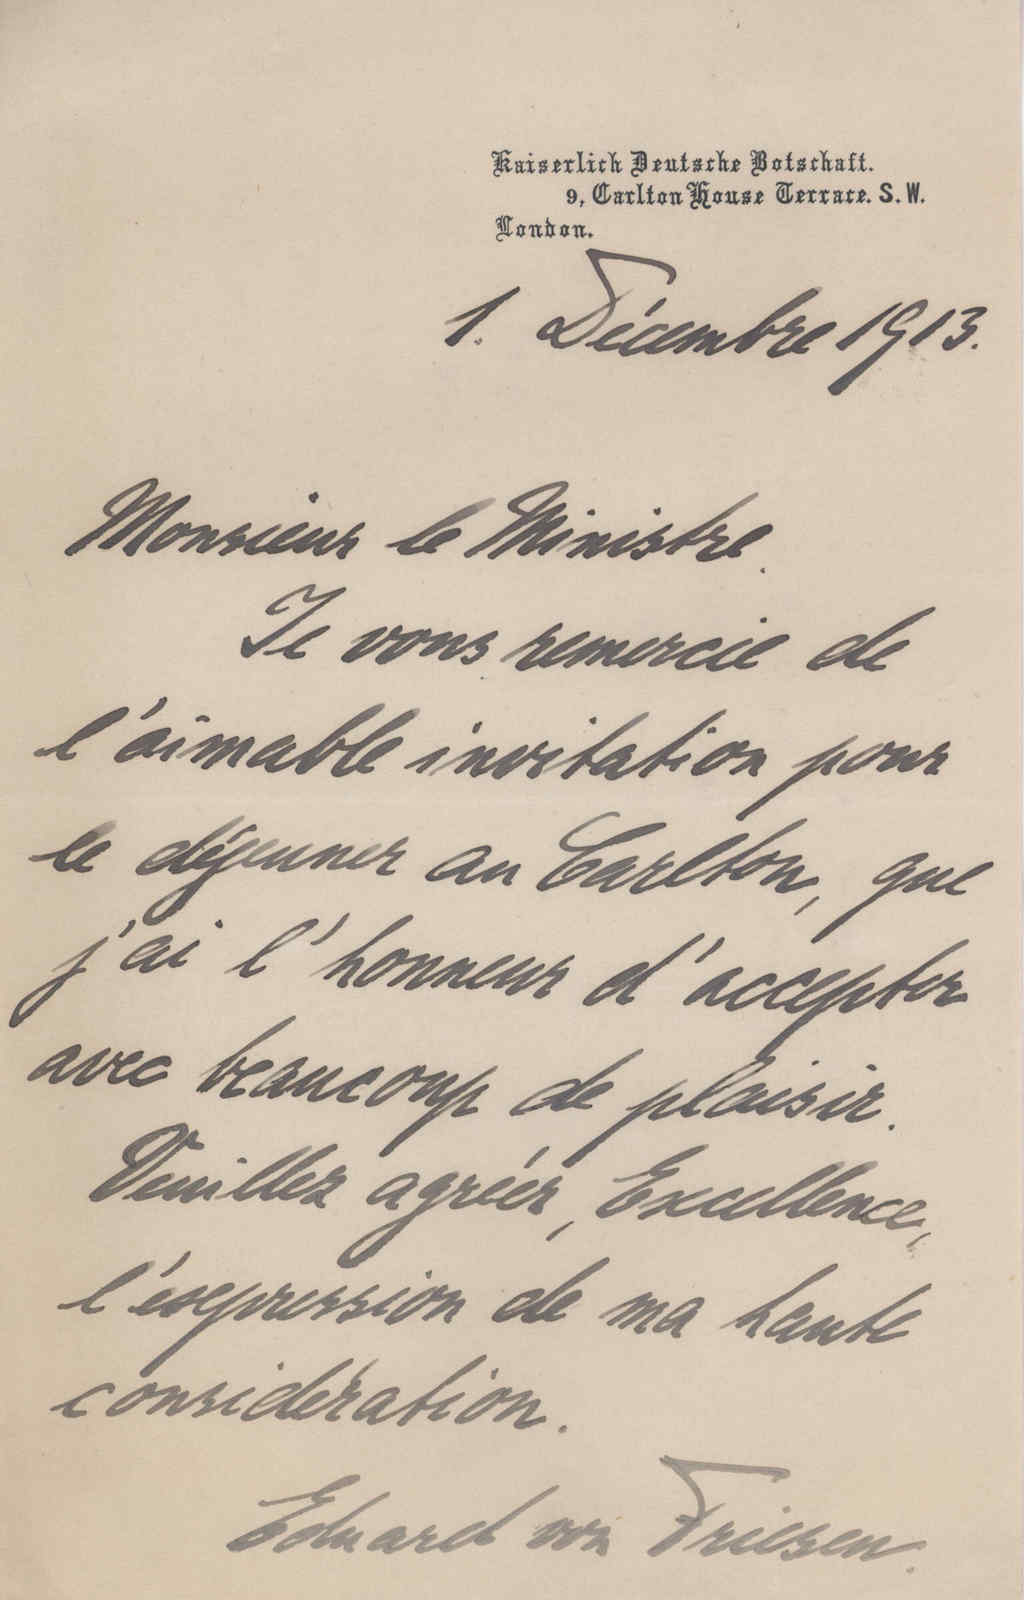 Kaiserlich Deutsche Botschaft.
9, Carlton House Terrace. S.W.
London.
1. Décembre 1913.
Monsieur le Ministre.
Je vous remercie de
l'aimable invitation pour
le déjeuner au Carlton, que
j'ai l'honneur d'accepter
avec beaucoup de plaisir.
Veuillez agréer, Excellence,
l'expression de ma haute
considération.
Eduard von Friesen.